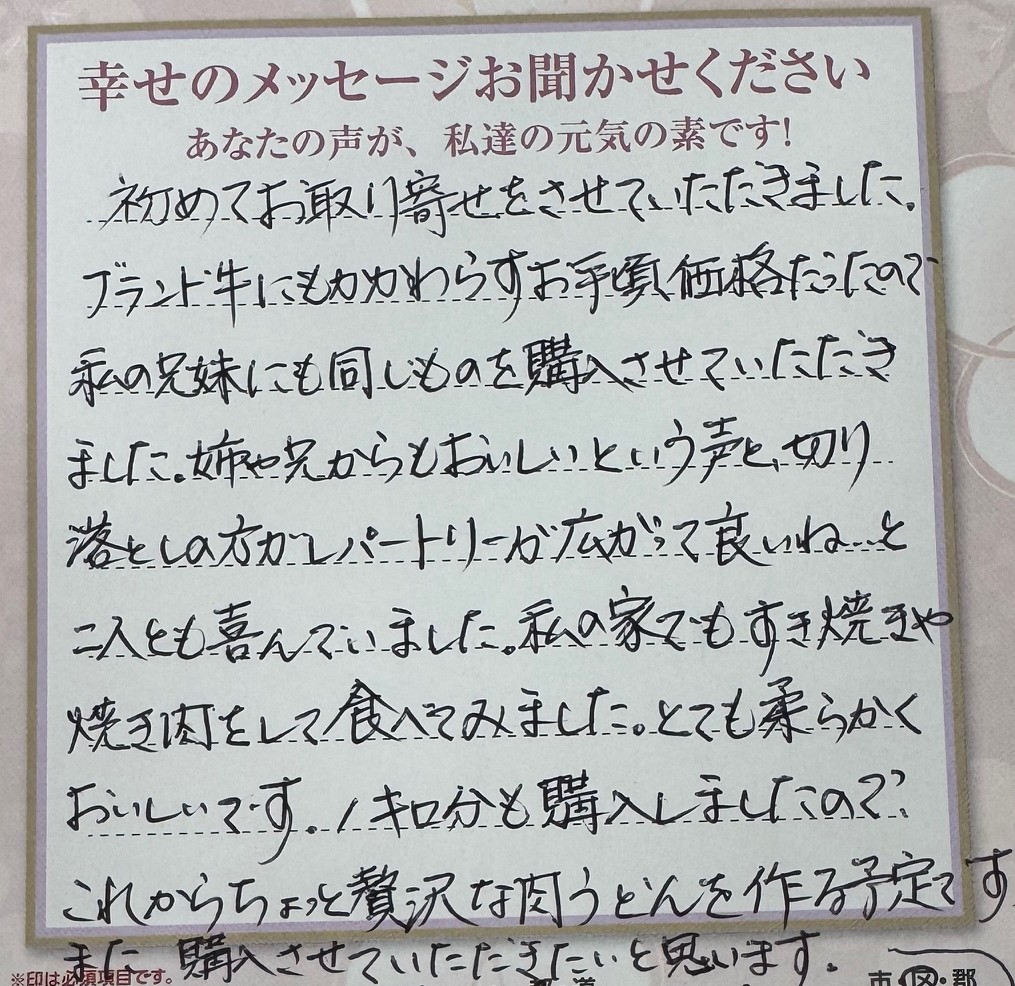 幸せのメッセージお聞かせください
あなたの声が、私達の元気の素です!
初めてお取り寄せをさせていただきました。
ブランド牛にもかかわらずお手頃価格だったので
私の兄妹にも同じものを購入させていただき
ました。姉や兄からもおいしいという声と、切り
落としの方がレパートリーが広がって良いね…と
二人とも喜んでいました。私の家でもすき焼きや
焼き肉をして食べてみました。とても柔らかく
おいしいです。1キロ分も購入しましたので、
これからちょっと贅沢な肉うどんを作る予定です
また、購入させていただきたいと思います。
※印は必須項目です。
市・区・郡